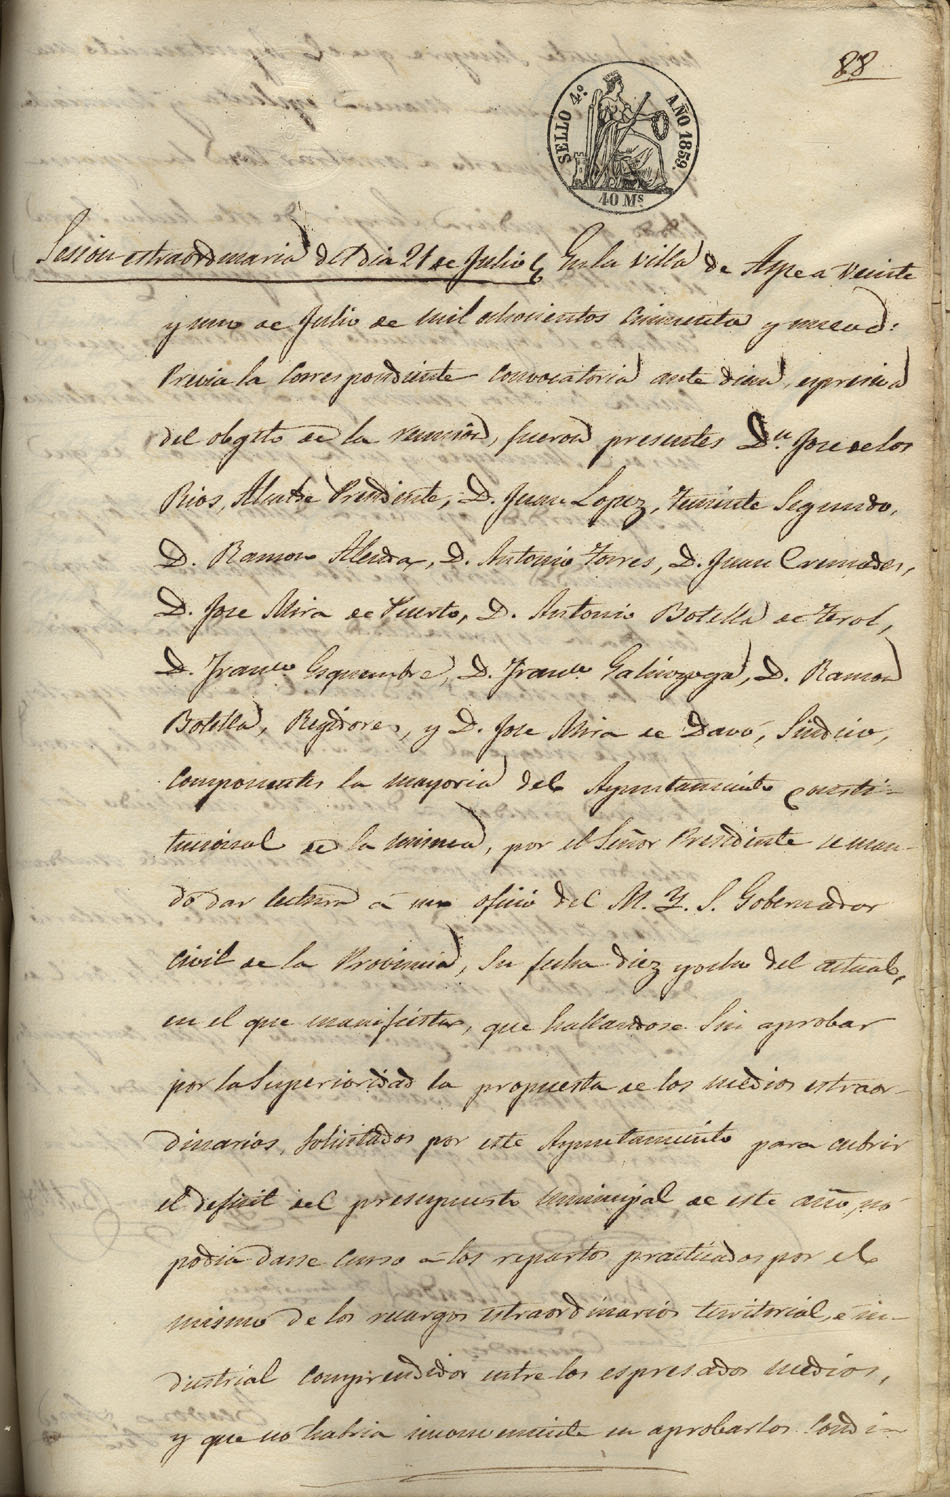 88
SELLO 4.º AÑO 1859.
40 Ms
Sesion estraordinaria del dia 21 de Julio En la villa de Aspe a veinte
y uno de Julio de mil ochocientos cincuenta y nueve:
Previa la correspondiente convocatoria ante diem, espresiva
del obgeto de la reunion, fueron presentes Dn. Jose de los
Rios, Alcalde Presidente, D. Juan Lopez, Teniente Segundo,
D. Ramon Almodar, D. Antonio Torres, D. Juan Cremades,
D. Jose Mira de Puerto, D. Antonio Botella de Terol,
D. Franco. Esquembre, D. Franco. Galinzoga, D. Ramon
Botella, Regidores, y D. Jose Mira de Davó, Sindico,
componentes la mayoria del Ayuntamiento consti-
tucional de la misma, por el Señor Presidente se man-
dó dar lectura á un oficio del M. Y. S. Gobernador
Civil de la Provincia, su fecha diez y ocho del actual,
en el que manifiesta, que hallandose sin aprobar
por la Superioridad la propuesta de los medios estraor-
dinarios, solicitados por este Ayuntamiento para cubrir
el deficit del presupuesto municipal de este año, no
podia darse curso á los repartos practicados por el
mismo de los recargos estraordinarios territorial, e in-
dustrial comprendidos entre los espresados medios,
y que no habria inconveniente en aprobarlos condi-